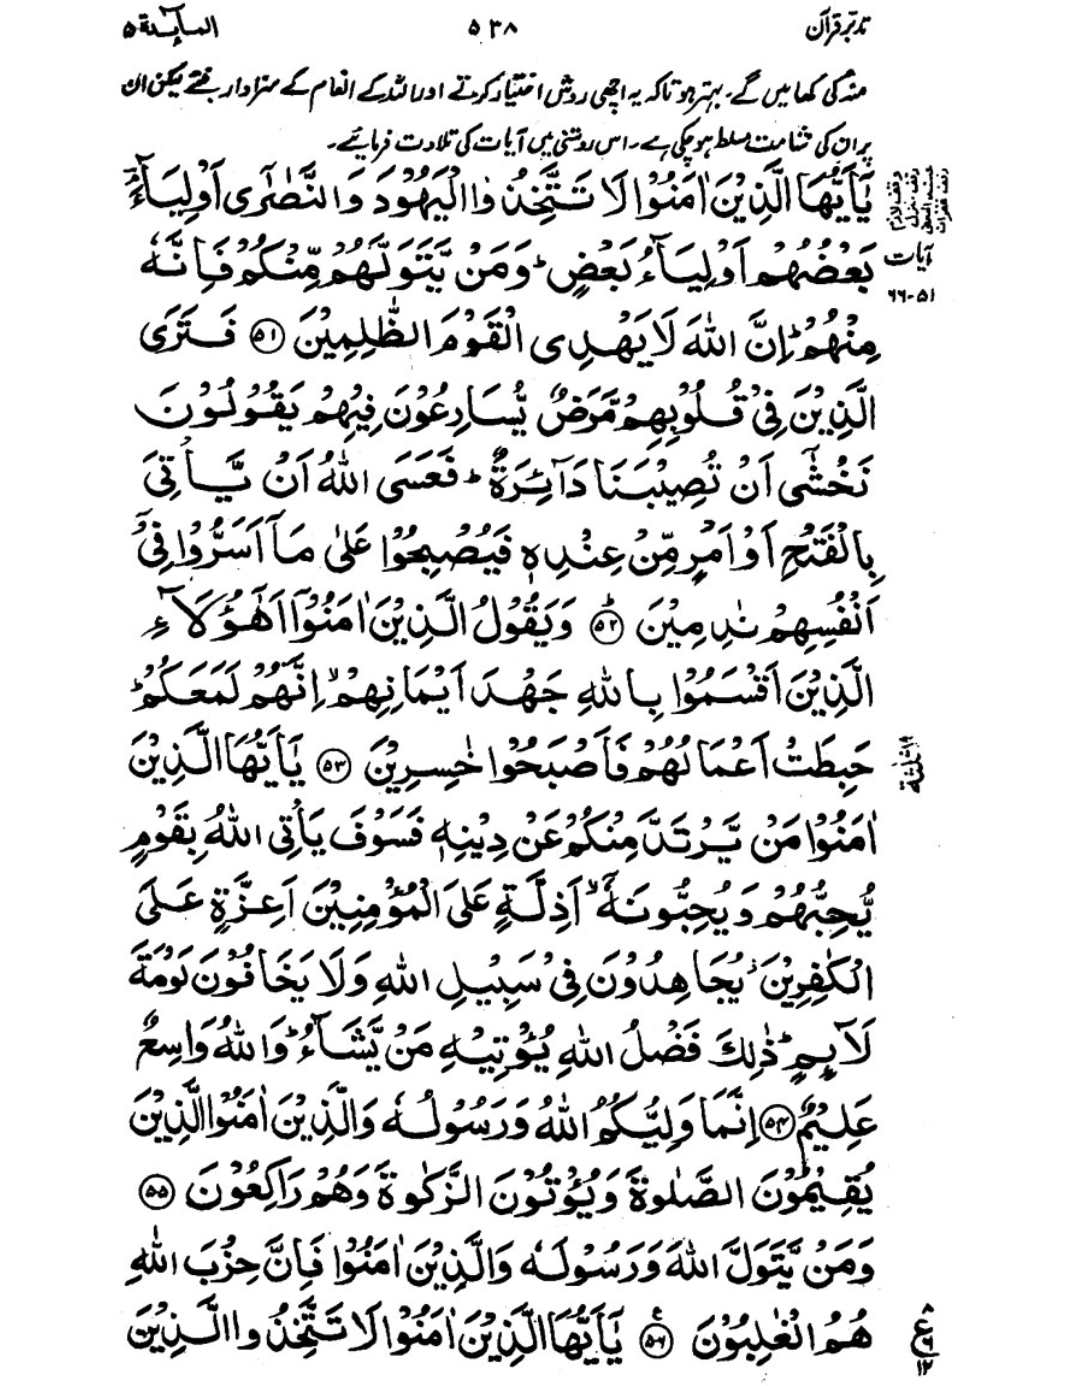 تدبر قرآن ۵۳۸ المآىِٕدة ۵
منہ کی کھائیں گے۔ بہتر ہوتا کہ یہ اچھی روش اختیار کرتے اور اللہ کے انعام کے سزاوار بنتے لیکن ان
پر ان کی شامت مسلط ہو چکی ہے۔ اس روشنی میں آیات کی تلاوت فرمائیے۔
يٰٓاَيُّهَا الَّذِيْنَ اٰمَنُوْا لَا تَتَّخِذُوا الْيَهُوْدَ وَالنَّصٰرٰٓى اَوْلِيَآءَ ۘ
آیات
۵۱-۶۶
بَعْضُهُمْ اَوْلِيَآءُ بَعْضٍ ؕ وَمَنْ يَّتَوَلَّهُمْ مِّنْكُمْ فَاِنَّهٗ
مِنْهُمْ ؕ اِنَّ اللّٰهَ لَا يَهْدِى الْقَوْمَ الظّٰلِمِيْنَ ﴿۵۱﴾ فَتَرَى
الَّذِيْنَ فِىْ قُلُوْبِهِمْ مَّرَضٌ يُّسَارِعُوْنَ فِيْهِمْ يَقُوْلُوْنَ
نَخْشٰٓى اَنْ تُصِيْبَنَا دَآئِرَةٌ ؕ فَعَسَى اللّٰهُ اَنْ يَّاْتِىَ
بِالْفَتْحِ اَوْ اَمْرٍ مِّنْ عِنْدِهٖ فَيُصْبِحُوْا عَلٰى مَآ اَسَرُّوْا فِىْٓ
اَنْفُسِهِمْ نٰدِمِيْنَ ﴿۵۲﴾ وَيَقُوْلُ الَّذِيْنَ اٰمَنُوْٓا اَهٰٓؤُلَآءِ
الَّذِيْنَ اَقْسَمُوْا بِاللّٰهِ جَهْدَ اَيْمَانِهِمْ ۙ اِنَّهُمْ لَمَعَكُمْ ؕ
حَبِطَتْ اَعْمَالُهُمْ فَاَصْبَحُوْا خٰسِرِيْنَ ﴿۵۳﴾ يٰٓاَيُّهَا الَّذِيْنَ
اٰمَنُوْا مَنْ يَّرْتَدَّ مِنْكُمْ عَنْ دِيْنِهٖ فَسَوْفَ يَاْتِى اللّٰهُ بِقَوْمٍ
يُّحِبُّهُمْ وَيُحِبُّوْنَهٗٓ ۙ اَذِلَّةٍ عَلَى الْمُؤْمِنِيْنَ اَعِزَّةٍ عَلَى
الْكٰفِرِيْنَ ؗ يُجَاهِدُوْنَ فِىْ سَبِيْلِ اللّٰهِ وَلَا يَخَافُوْنَ لَوْمَةَ
لَآئِمٍ ؕ ذٰلِكَ فَضْلُ اللّٰهِ يُؤْتِيْهِ مَنْ يَّشَآءُ ؕ وَاللّٰهُ وَاسِعٌ
عَلِيْمٌ ﴿۵۴﴾ اِنَّمَا وَلِيُّكُمُ اللّٰهُ وَرَسُوْلُهٗ وَالَّذِيْنَ اٰمَنُوا الَّذِيْنَ
يُقِيْمُوْنَ الصَّلٰوةَ وَيُؤْتُوْنَ الزَّكٰوةَ وَهُمْ رَاكِعُوْنَ ﴿۵۵﴾
وَمَنْ يَّتَوَلَّ اللّٰهَ وَرَسُوْلَهٗ وَالَّذِيْنَ اٰمَنُوْا فَاِنَّ حِزْبَ اللّٰهِ
هُمُ الْغٰلِبُوْنَ ﴿۵۶﴾ يٰٓاَيُّهَا الَّذِيْنَ اٰمَنُوْا لَا تَتَّخِذُوا الَّذِيْنَ
ع
۱۲